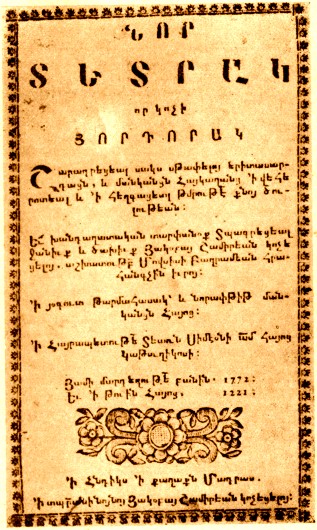 ՆՈՐ
ՏԵՏՐԱԿ
որ կոչի
ՅՈՐԴՈՐԱԿ
Շարադրեցեալ սակս սթափելոյ երիտասար֊
դացն, և մանկանցն Հայկազանց ՚ի վեհե֊
րոտեալ և ՚ի հեղգացեալ թմրութէ քնոյ ծու֊
լութեան։
Եւ խանդաղատական տարփանօք Տպադրեցեալ
ջանիւք և ծախիւք Յակոբայ Շամիրեան կոչե
ցելոյ. աշխատութբ Մովսիսի Բաղրամեան Հրա֊
հանգչին իւրոյ։
՚Ի յօգուտ թարմահասակ՝ և նորափթիթ ման֊
կանցն Հայոց։
՚Ի Հայրապետութե Տեառն Սիմէօնի ամ Հայոց
կաթուղիկոսի։
Յամի մարդեղութե բանին. 1772։
Եւ ՚ի թուին Հայոց. 1221։
՚Ի Հնդիկս ՚ի քաղաքն Մադրաս.
Յակոբայ Շամիրեան կոչեցելոյ։